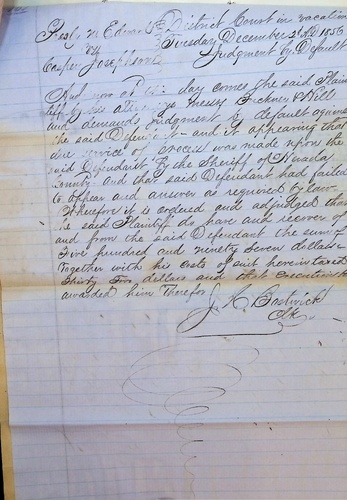 Edwards District Court in vacation
vs Tuesday December 2nd 1856
Casper Josephson Judgment by Default
And now at this day comes the said Plain
tiff by his attorneys Messrs & Hill
and demands judgment by default against
the said Defendant - and it appearing that
due service of process was made upon the
said Defendant By the Sheriff of Nevada
County and that said Defendant had failed
to appear and answer as required by law
Wherefore it is ordered and adjudged that
the said Plaintiff do have and recover of
and from the said Defendant the sum of
Five hundred and ninety seven dollars
together with his costs of suit herein taxed
thirty dollars and that Execution be
awarded him therefor
J. H. Bostwick
Clk